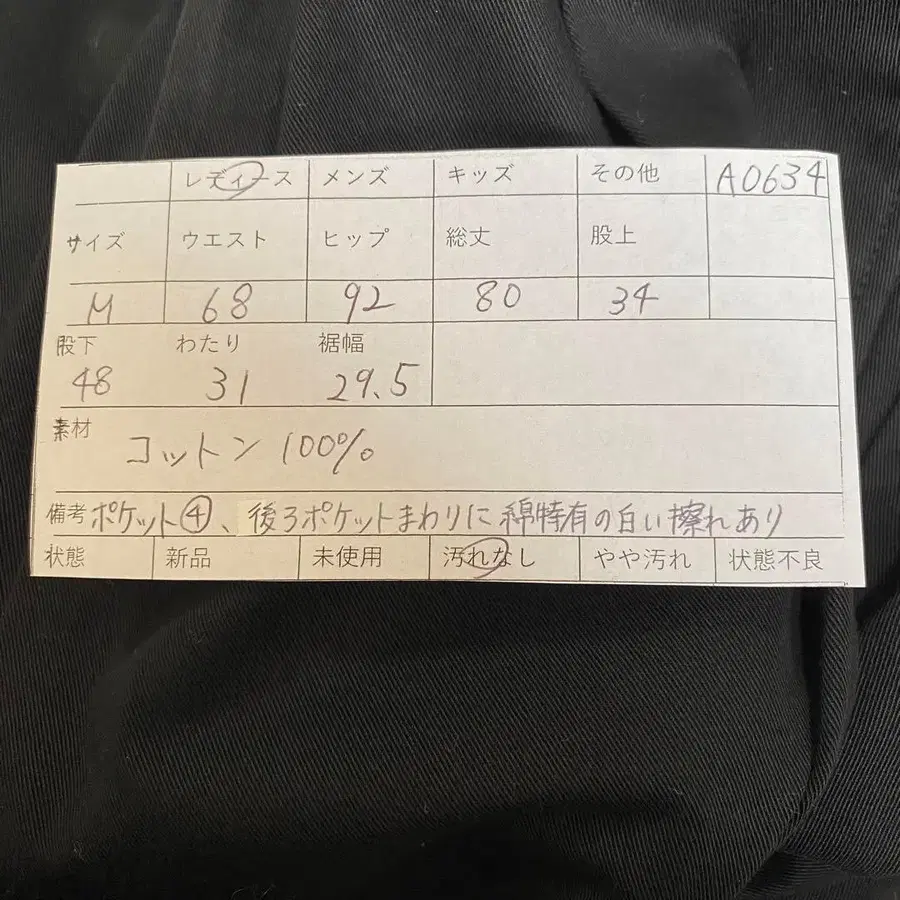 レディース メンズ キッズ その他 A0634
サイズ ウエスト ヒップ 総丈 股上
M 68 92 80 34
股下 わたり 裾幅
48 31 29.5
素材
コットン 100%
備考 ポケット④、後ろポケットまわりに綿特有の白い擦れあり
状態 新品 未使用 汚れなし やや汚れ 状態不良